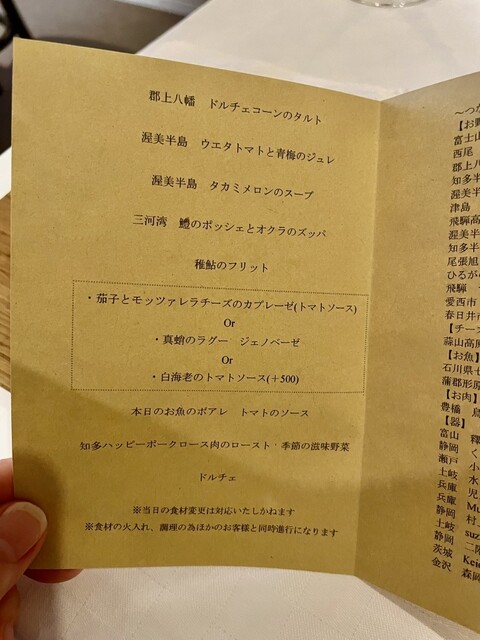 郡上八幡　ドルチェコーンのタルト
渥美半島　ウエタトマトと青梅のジュレ
渥美半島　タカミメロンのスープ
三河湾　鱧のポッシェとオクラのズッパ
稚鮎のフリット
・茄子とモッツァレラチーズのカプレーゼ(トマトソース)
Or
・真蛸のラグー　ジェノベーゼ
Or
・白海老のトマトソース(＋500)
本日のお魚のポアレ　トマトのソース
知多ハッピーポークロース肉のロースト・季節の滋味野菜
ドルチェ
※当日の食材変更は対応いたしかねます
※食材の火入れ、調理の為ほかのお客様と同時進行になります
～つか
【お野
富士山
西尾
郡上八
知多半
渥美半
津島
飛騨高
渥美半
知多半
尾張旭
ひるが
飛騨
愛西市
春日井市
【チー
蒜山高原
【お魚】
石川県七
蒲郡形原
【お肉】
豊橋　鳥
【器】
富山　釋
静岡　く
瀬戸　小
土岐　水
兵庫　児
兵庫　Mu
静岡　村上
土岐　suz
静岡　二階
茨城　Keic
金沢　森岡